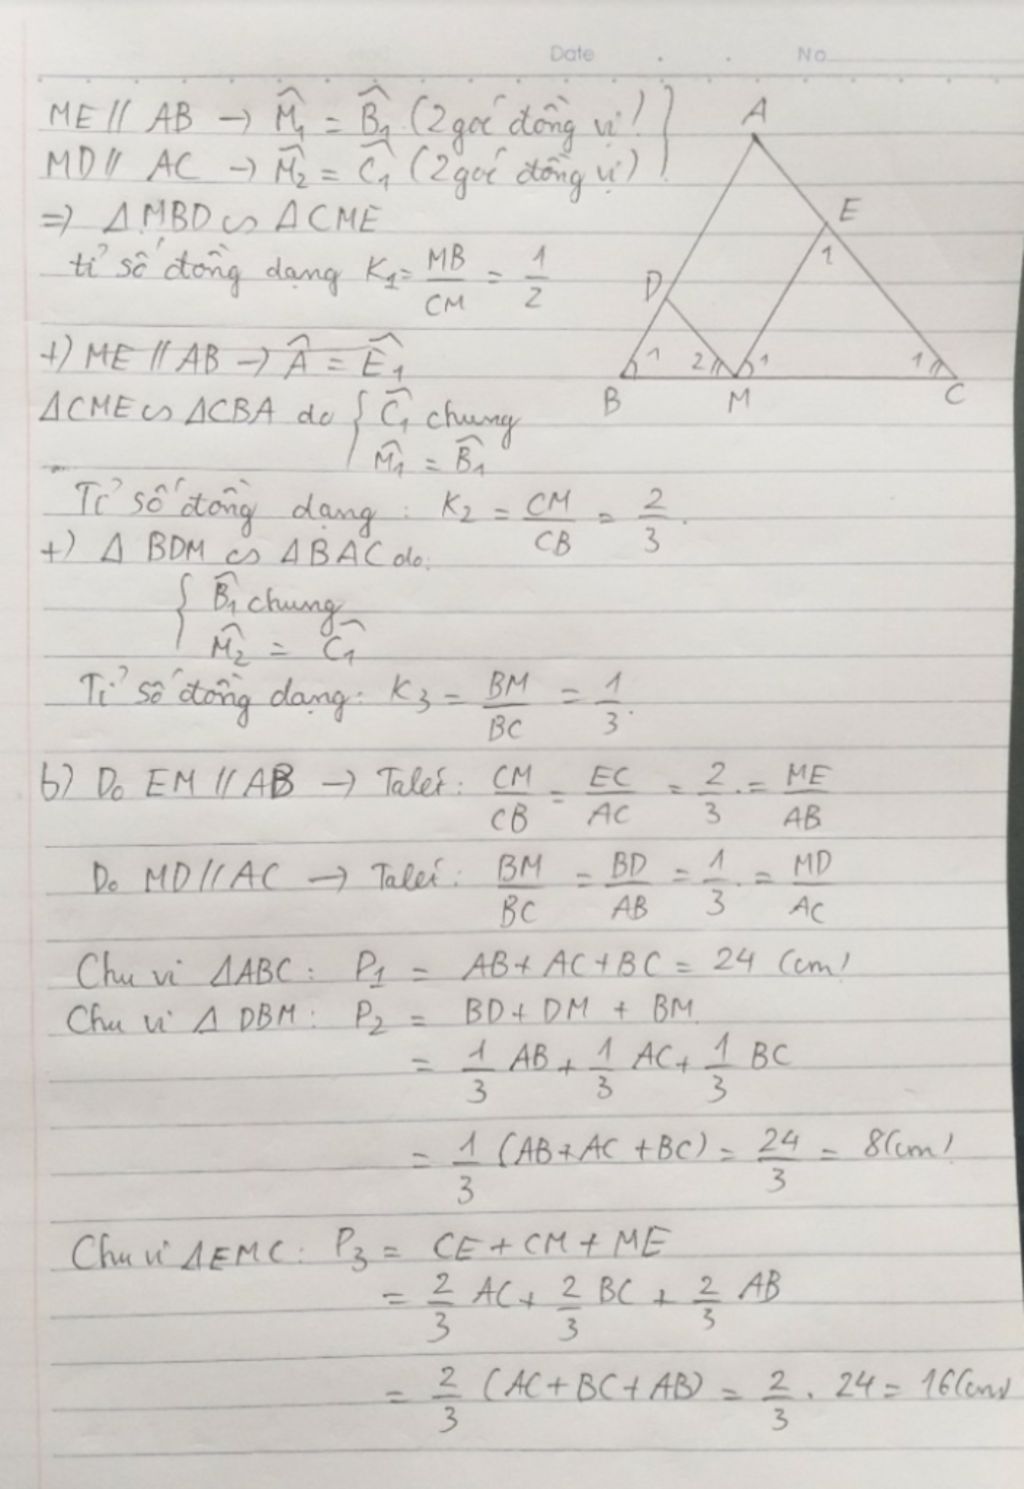 Date . . No
ME // AB → M̂₁ = B̂₁ (2 góc đồng vị)
MD // AC → M̂₂ = Ĉ₁ (2 góc đồng vị)
=> Δ MBD ∽ Δ CME
tỉ số đồng dạng K₁ = MB/CM = 1/2
+) ME // AB → Â = Ê₁
ΔCME ∽ ΔCBA do { Ĉ₁ chung
M̂₁ = B̂₁
Tỉ số đồng dạng : K₂ = CM/CB = 2/3.
+) Δ BDM ∽ ΔBAC do:
{ B̂₁ chung
M̂₂ = Ĉ₁
Tỉ số đồng dạng: K₃ = BM/BC = 1/3.
b) Do EM // AB → Talét: CM/CB = EC/AC = 2/3. = ME/AB
Do MD // AC → Talét: BM/BC = BD/AB = 1/3. = MD/AC
Chu vi ΔABC: P₁ = AB + AC + BC = 24 (cm)
Chu vi Δ DBM: P₂ = BD + DM + BM
= 1/3 AB + 1/3 AC + 1/3 BC
= 1/3 (AB + AC + BC) = 24/3 = 8(cm)
Chu vi ΔEMC: P₃ = CE + CM + ME
= 2/3 AC + 2/3 BC + 2/3 AB
= 2/3 (AC + BC + AB) = 2/3 . 24 = 16(cm)
A
E
1
D
1 2 1 1
B M C